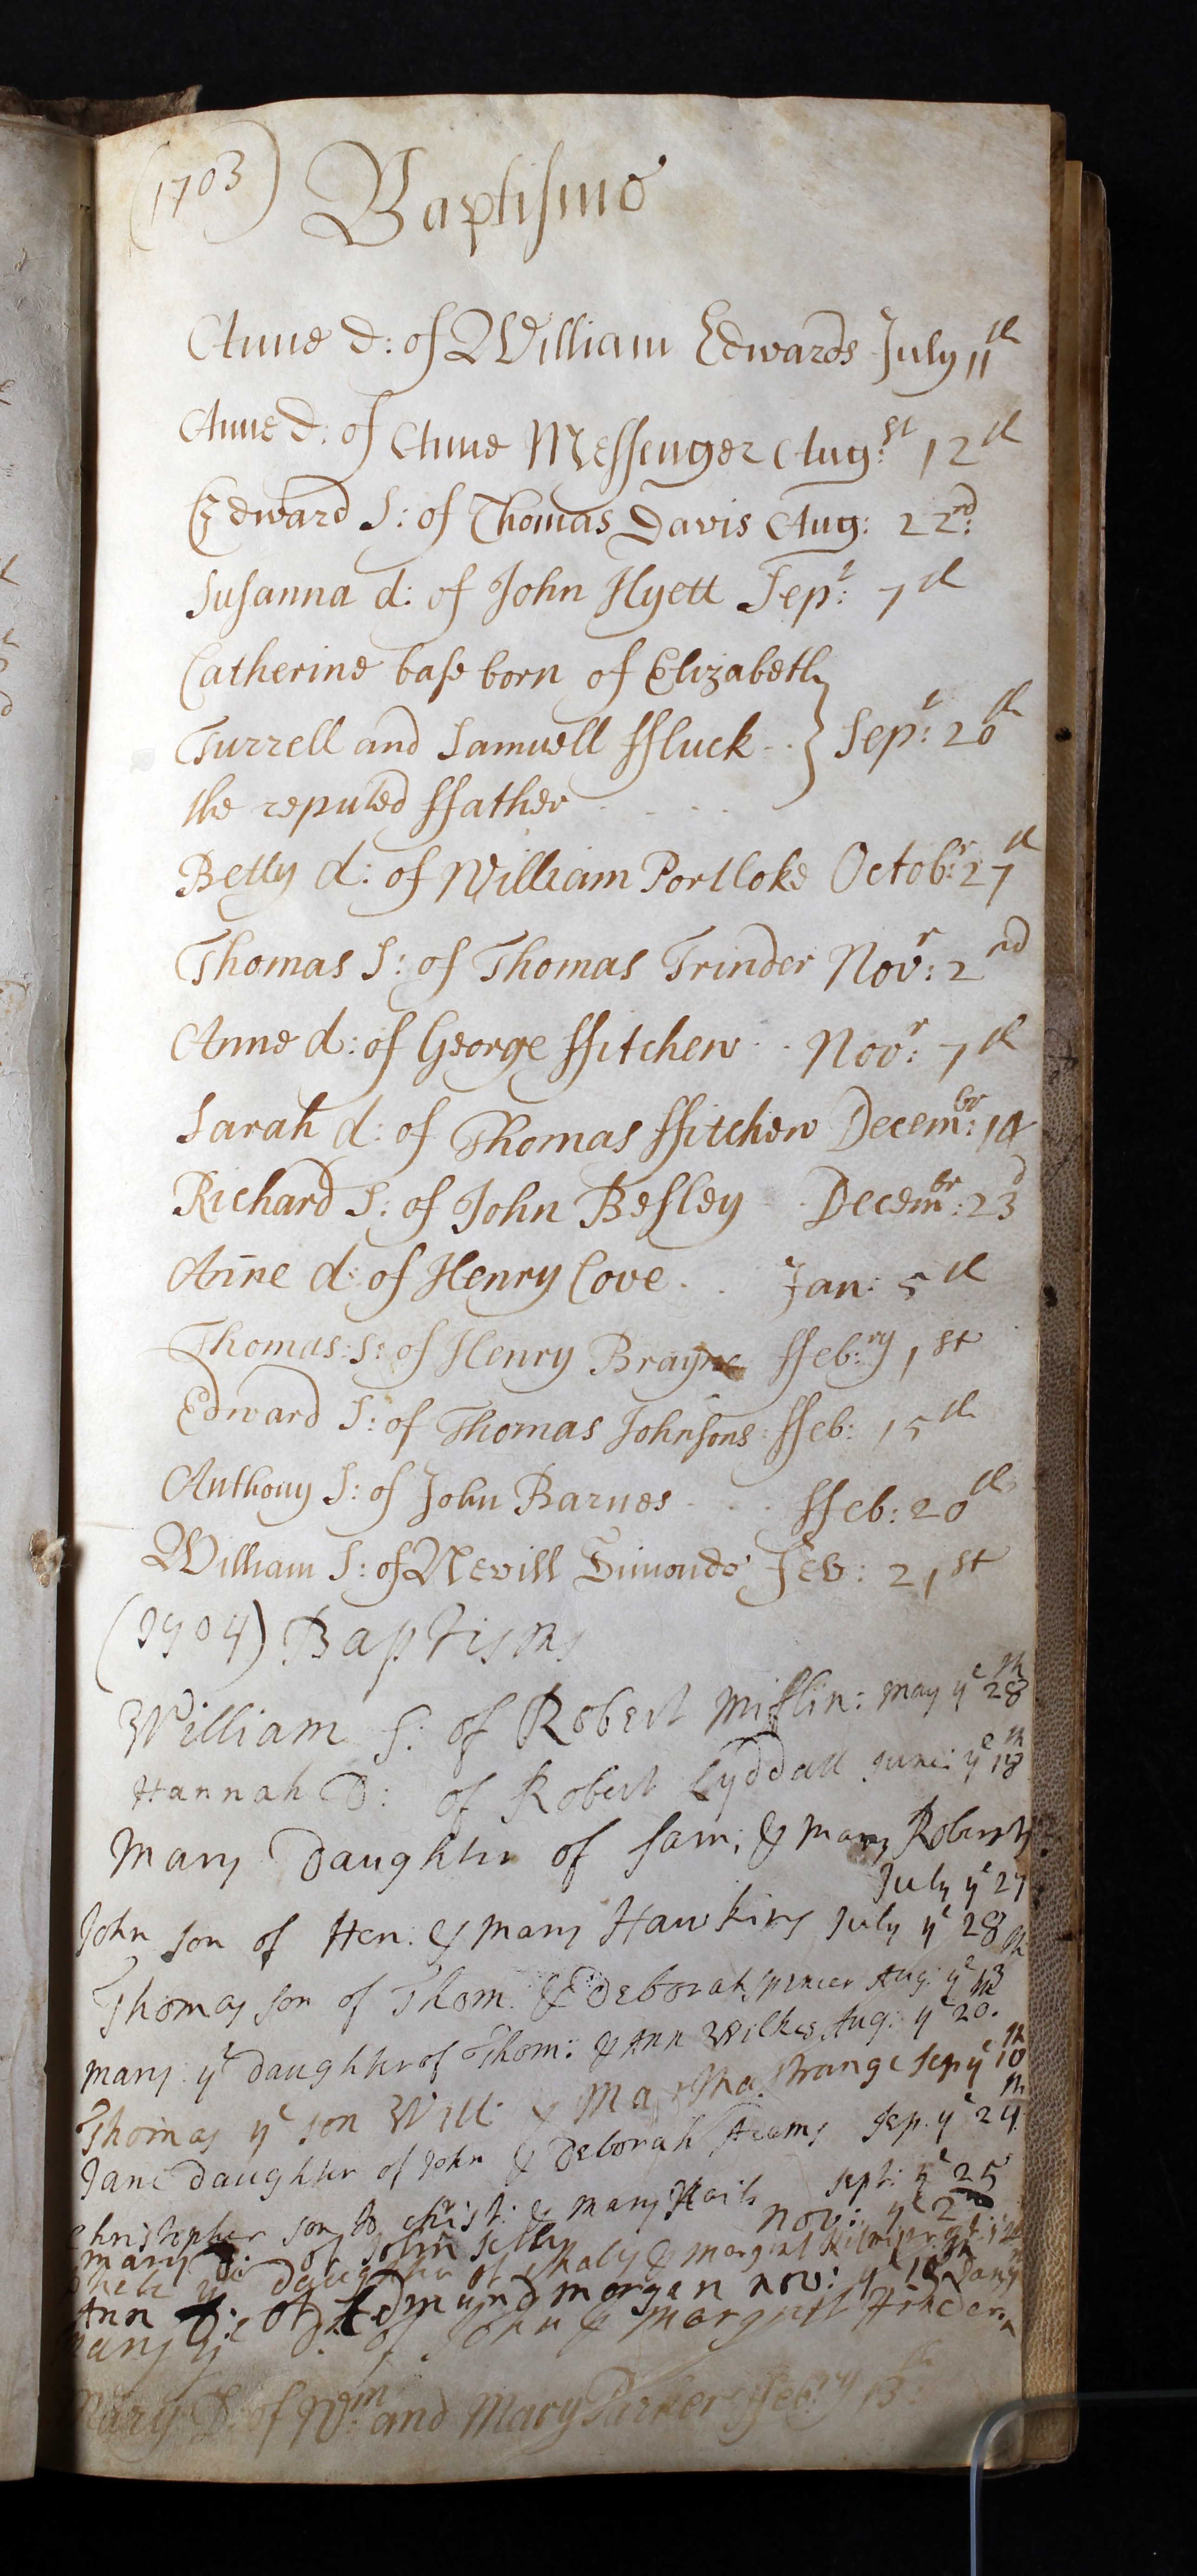 (1703) Baptisms
Anne d: of William Edwards July 11th
Anne d: of Anne Messenger Aug:st 12th
Edward S: of Thomas Davis Aug: 22nd:
Susanna d: of John Hyett Sept: 7th
Catherine base born of Elizabeth
Turrell and Samuell ffluck - - } Sept: 20th
the reputed ffather - - - -
Betty d: of William Portloke Octobr: 27th
Thomas S: of Thomas Trinder Novr: 2nd
Anne d: of George ffitchew - - Novr: 7th
Sarah d: of Thomas ffitchew Decembr: 14
Richard S: of John Besley - - Decembr: 23d
Anne d: of Henry Cove - - Jan: 5th
Thomas: S: of Henry Brayne ffeb:ry 1st
Edward S: of Thomas Johnsons ffeb: 15th
Anthony S: of John Barnes - - - ffeb: 20th
William S: of Nevill Simonds Feb: 21st
(1704) Baptisms
William S: of Robert Mifflin: may ye 28th
Hannah D: of Robert Lyddall June: ye 18th
Mary Daughter of Sam: & Mary Roberts
July ye 27
John son of Hen: & Mary Hawkins July ye 28th
Thomas son of Thom: & Deborah Spencer Aug: ye 13th
Mary ye daughter of Thom: & Ann Wilkes Aug: ye 20.
Thomas ye son Will: & Martha Strange Sep ye 10th
Jane Daughter of John & Deborah Sep. ye 24th
Christopher son to Christ: & Mary Sept: ye 25
Mary D: of John Selby Nov: ye 2nd
ye Daughter of & Margret
Ann D: of Edmund Morgan Nov: ye 18th
Mary ye D: of John & Margrett
Mary D: of Wm: and Mary Parker ffeb:ry 13th: